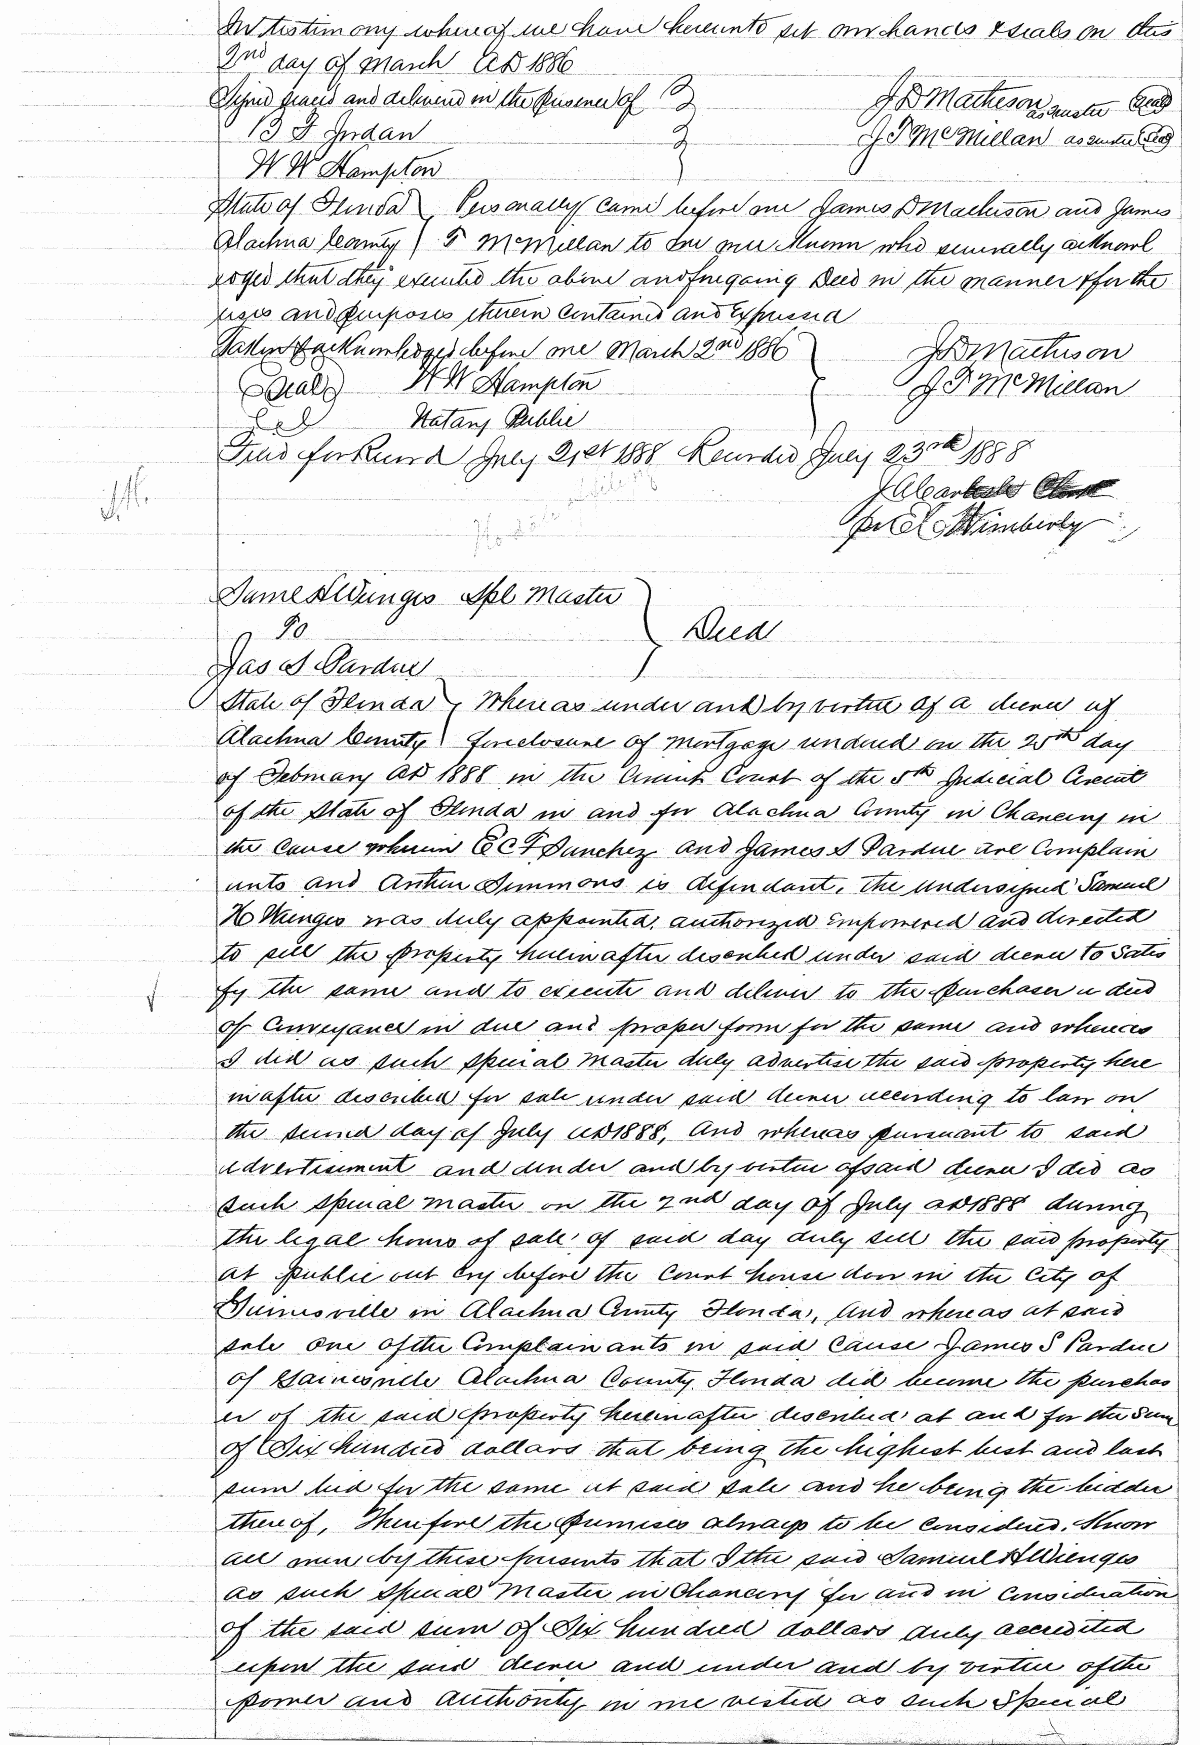 In testimony whereof we have hereunto set our hands & seals on this
2nd day of March AD 1886
Signed sealed and delivered in the presence of
J D Matheson as trustee (Seal)
B F Jordan
J F McMillan as trustee (Seal)
W W Hampton
State of Florida } Personally came before me James D Matheson and James
Alachua County } F McMillan to me well known who severally acknowl
edged that they executed the above and foregoing Deed in the manner & for the
uses and purposes therein contained and expressed
Taken & acknowledged before me March 2nd 1886
J D Matheson
(Seal) W W Hampton
J F McMillan
Notary Public
Filed for Record July 21st 1888 Recorded July 23rd 1888
J A Carlisle Clerk
pr Wimberly
Samel H Wienges Spl Master
To
Deed
Jas S Pardue
State of Florida } Whereas under and by virtue of a decree of
Alachua County } foreclosure of mortgage rendered on the 25th day
of February AD 1888 in the Circuit Court of the 5th Judicial Circuit
of the State of Florida in and for Alachua County in Chancery in
the cause wherein E C F Sanchez and James S Pardue are Complain
ants and Arthur Simmons is defendant, the undersigned Samuel
H Wienges was duly appointed, authorized empowered and directed
to sell the property hereinafter described under said decree to satis
fy the same and to execute and deliver to the purchaser a deed
of Conveyance in due and proper form for the same and whereas
I did as such special master duly advertise the said property here
inafter described for sale under said decree according to law on
the second day of July AD 1888, And whereas pursuant to said
advertisement and under and by virtue of said decree I did as
such special master on the 2nd day of July AD 1888 during
the legal hours of sale of said day duly sell the said property
at public out cry before the Court house door in the City of
Gainesville in Alachua County Florida, And whereas at said
sale one of the Complainants in said cause James S Pardue
of Gainesville Alachua County Florida did become the purchas
er of the said property hereinafter described at and for the sum
of Six hundred dollars that being the highest best and last
sum bid for the same at said sale and he being the bidder
thereof, Therefore the premises always to be considered. Know
all men by these presents that I the said Samuel H Wienges
as such special Master in Chancery for and in consideration
of the said sum of Six hundred dollars duly accredited
upon the said decree and under and by virtue of the
power and authority in me vested as such Special